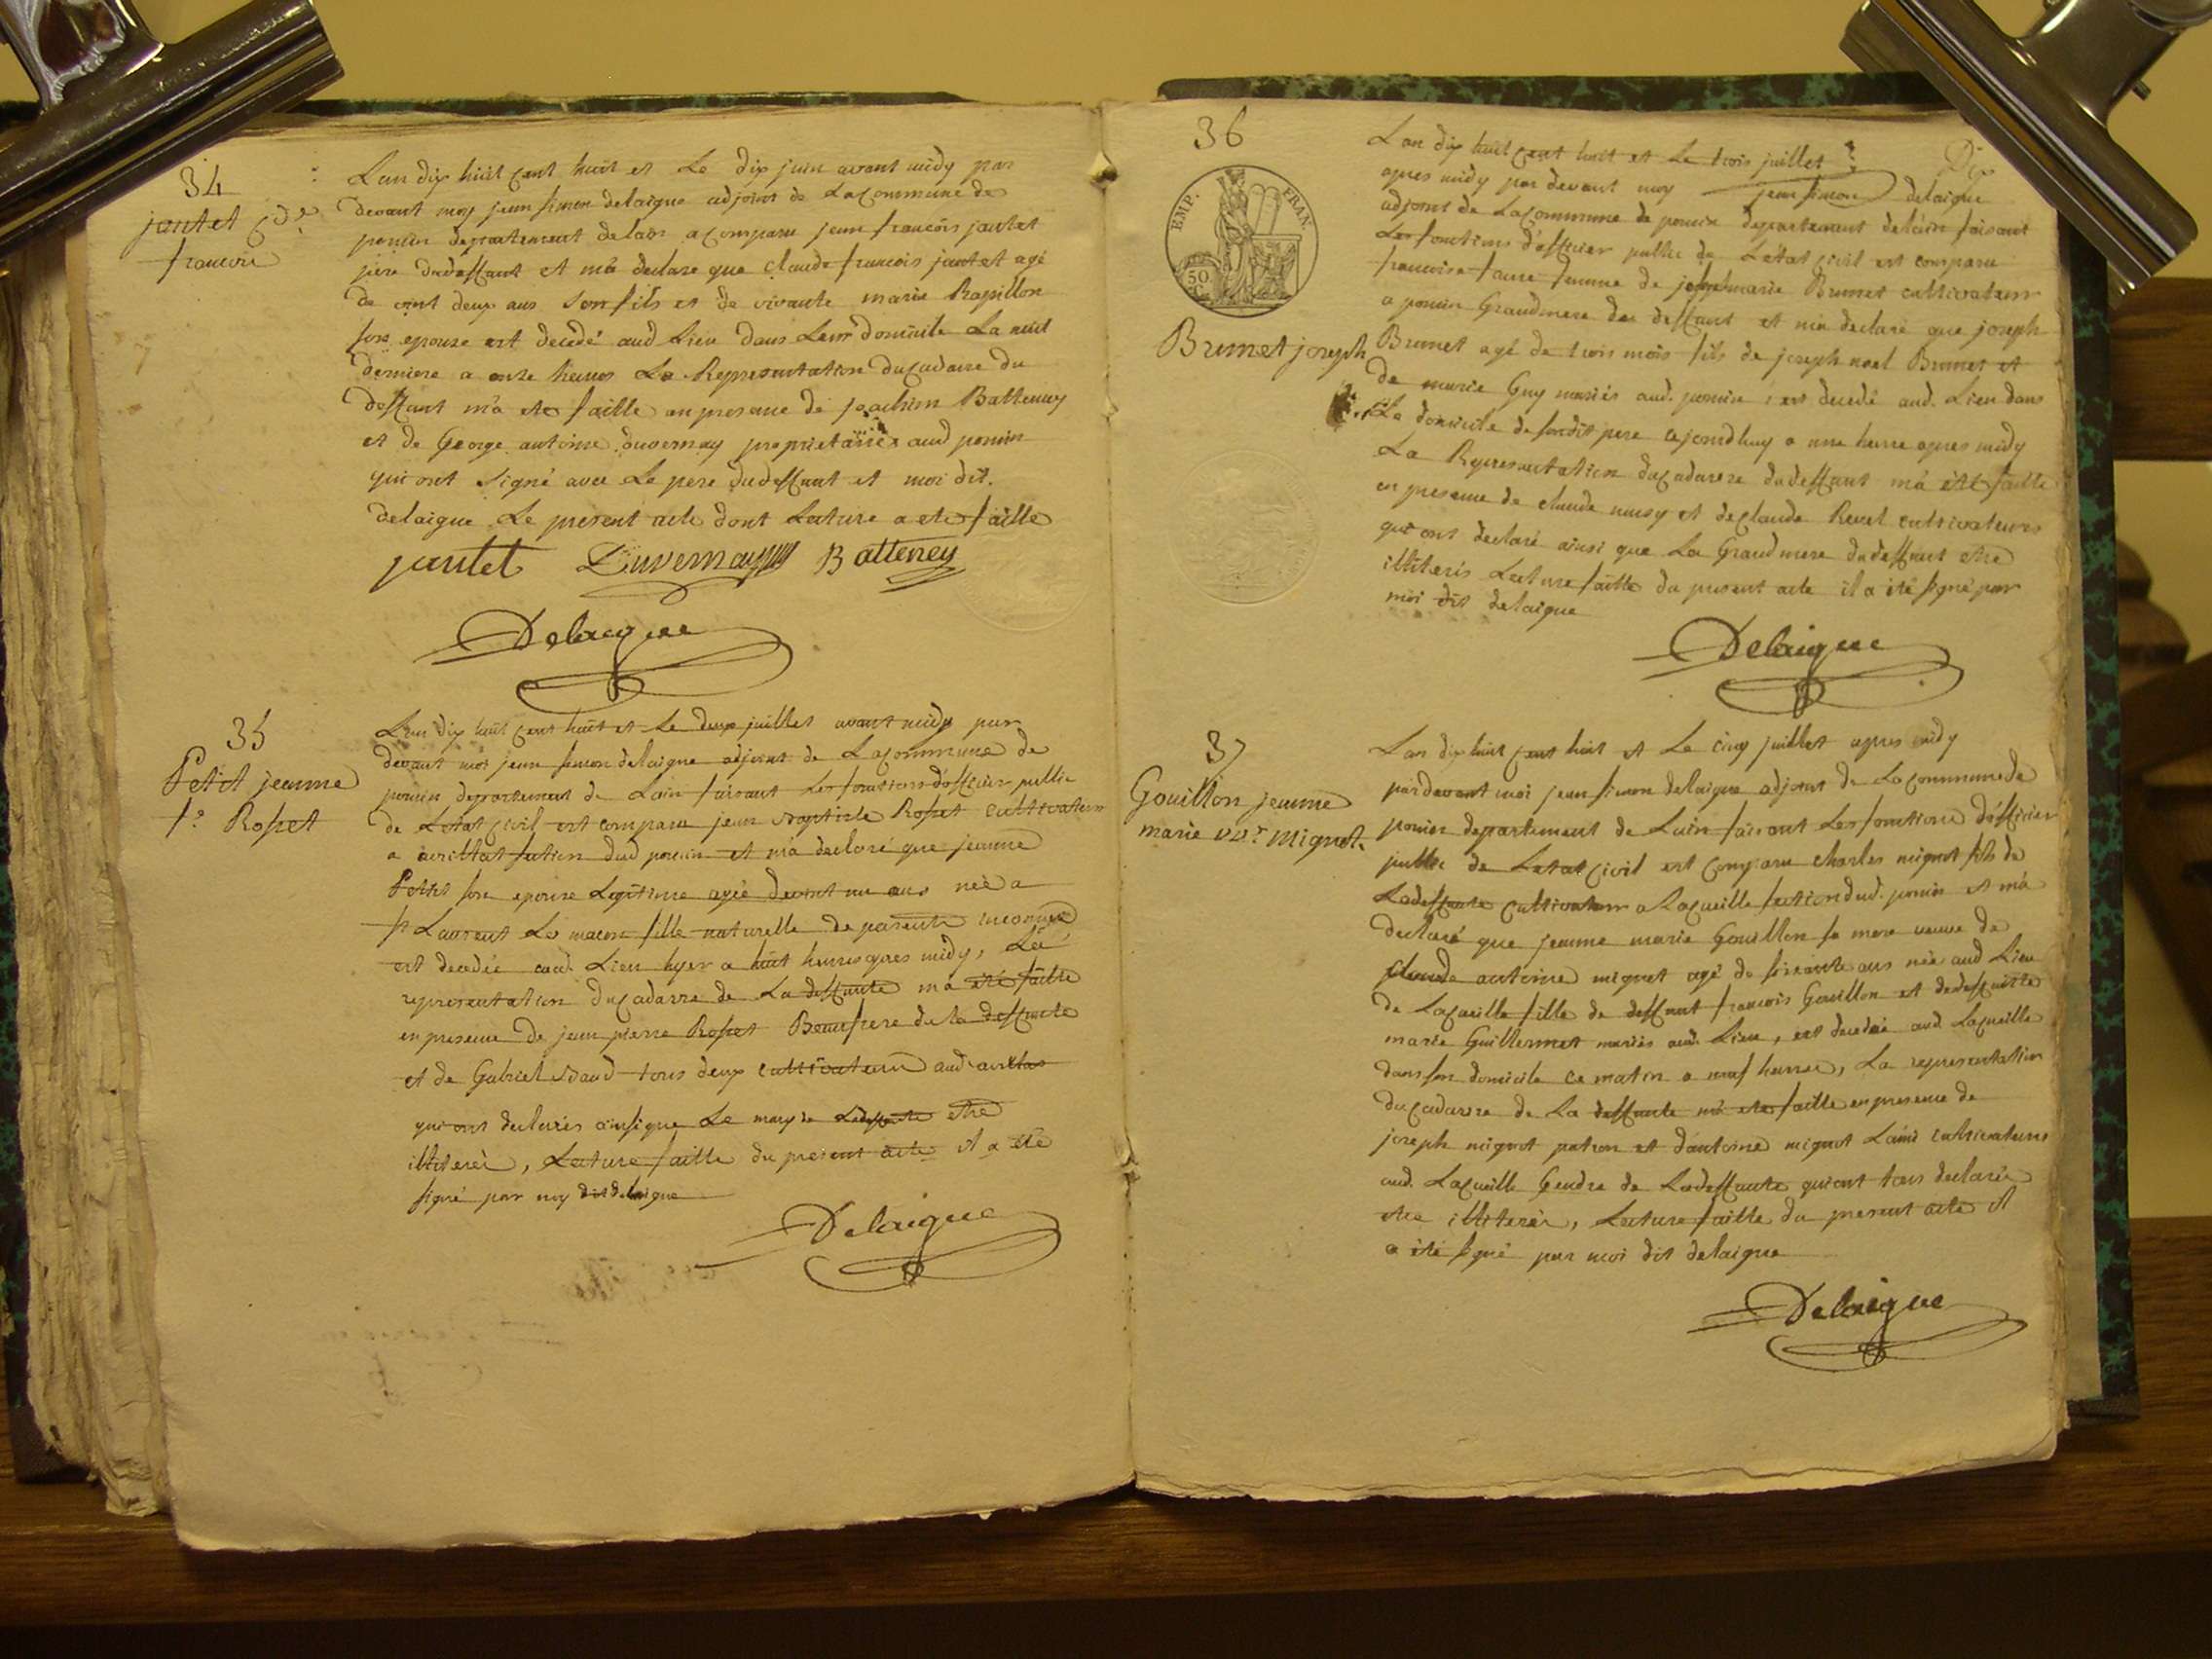 34
jantet Cde
francois
Lan dix huit cent huit et Le dix juin avant midy par
devant moy jean simon delaigue adjoint de La commune de
poncin departement de lain a comparu jean francois jantet
pere du deffunt et m'a declare que claude francois jantet agé
de vint deux ans son fils et de vivante marie Rapillon
son epouse est decedé aud Lieu dans Leur domicile La nuit
derniere a onze heures La Representation du cadavre du
deffunt m'a ete faitte en presence de joachim Batteney
et de George antoine duvernay proprietaires aud poncin
qui ont signé avec Le pere du deffunt et moi dit.
delaigue Le present acte dont Lecture a ete faitte
jantet Duvernay Batteney
Delaigue
35
Petit jeanne
fe Rosset
Lan dix huit cent huit et Le deux juillet avant midy par
devant moi jean simon delaigue adjoint de La commune de
poncin departement de Lain faisant Les fonctions d'officier public
de Letat civil est comparu jean baptiste Rosset cultivateur
a section dud poncin et m'a declaré que jeanne
Petit son epouse Legitime agée de vint un ans née a
st Laurent Les macon fille naturelle de parents inconnus
est decedée aud. Lieu hyer a huit heures apres midy, La
representation du cadavre de La deffunte m'a eté faitte
en presence de jean pierre Rosset Beaufrere de la deffunte
et de Gabriel tous deux cultivateurs aud
qui ont declarés ainsi que Le mary de La deffunte etre
illiterés, Lecture faitte du present acte il a été
signé par moy dit delaigue
Delaigue
36
Dix
EMP. FRAN.
50
Brunet joseph
Lan dix huit cent huit et Le trois juillet
apres midy par devant moy jean simon delaigue
adjoint de La commune de poncin departement de lain faisant
Les fonctions d'officier public de Létat civil est comparu
francoise faure femme de joseph marie Brunet cultivateur
a poncin Grandmere du deffunt et m'a declaré que joseph
Brunet agé de trois mois fils de joseph noel Brunet et
de marie Guy mariés aud. poncin est decedé aud. Lieu dans
Le domicile de son dit pere cejourdhuy a une heure apres midy
La Representation du cadavre du deffunt m'a été faitte
en presence de claude et de claude Revel cultivateurs
qui ont declaré ainsi que La Grandmere du deffunt etre
illiterés Lecture faitte du present acte il a été signé par
moi dit delaigue
Delaigue
37
Gouillon jeanne
marie vve mignot
Lan dix huit cent huit et Le cinq juillet apres midy
par devant moi jean simon delaigue adjoint de La commune de
poncin departement de Lain faisant Les fonctions d'officier
public de Letat civil est comparu charles mignot fils de
La deffunte cultivateur a La cueille section dud. poncin et m'a
declaré que jeanne marie Gouillon sa mere veuve de
claude antoine mignot agé de soixante ans née aud Lieu
de La cueille fille de deffunt francois Gouillon et de deffunte
marie Guillermet mariés aud. Lieu, est decedée aud. La cueille
dans son domicile ce matin a neuf heures, La representation
du cadavre de La deffunte m'a ete faitte en presence de
joseph mignot patron et d'antoine mignot Lainé cultivateurs
aud. La cueille Gendre de La deffunte qui ont tous declarés
etre illiterés, Lecture faitte du present acte il
a été signé par moi dit delaigue
Delaigue